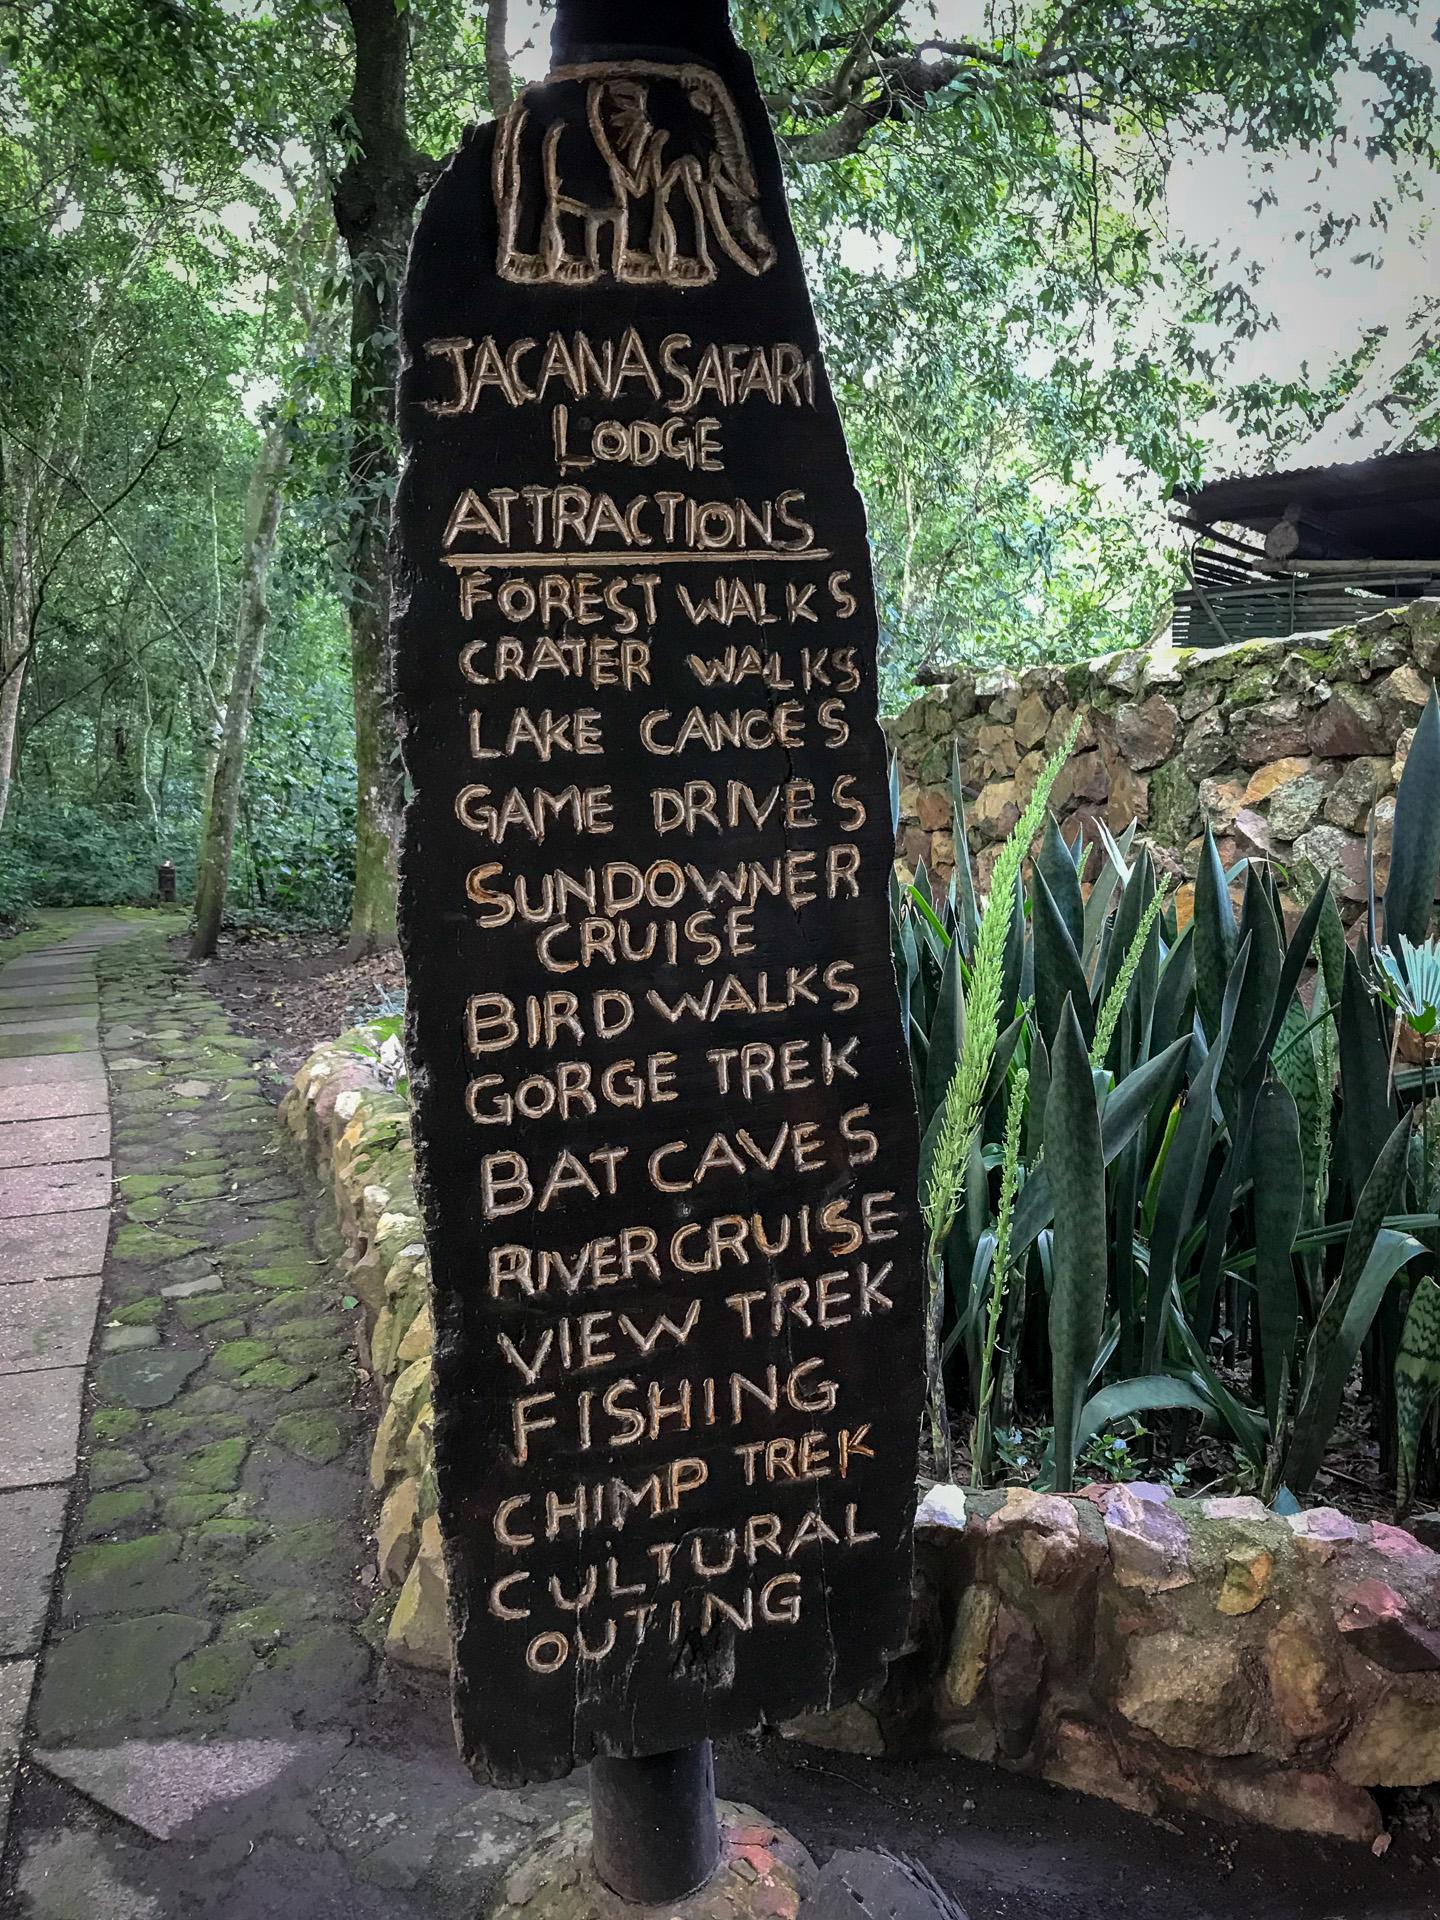 JACANA SAFARI
LODGE
ATTRACTIONS
FOREST WALKS
CRATER WALKS
LAKE CANOES
GAME DRIVES
SUNDOWNER
CRUISE
BIRD WALKS
GORGE TREK
BAT CAVES
RIVER CRUISE
VIEW TREK
FISHING
CHIMP TREK
CULTURAL
OUTING